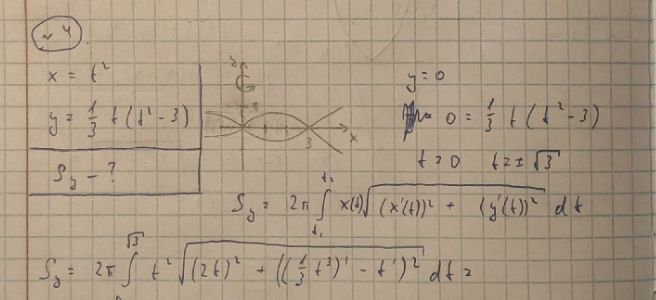 ~ 4
x = t²
y = 1/3 t (t² - 3)
S_y - ?
y
3
x
y = 0
0 = 1/3 t (t² - 3)
t = 0 t = ± √3
S_y = 2π ∫ x(t) √((x'(t))² + (y'(t))²) dt
S_y = 2π ∫ t² √((2t)² + ((1/3 t³)' - t')²) dt =